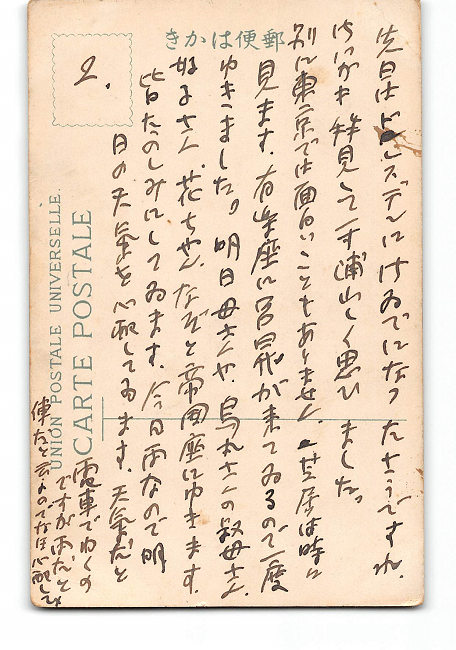 きかは便郵
UNION POSTALE UNIVERSELLE.
CARTE POSTALE
2.
先日はドレスデンにけゐでになつたさうですね。
はがき拝見して一寸浦山しく思ひました。
別に東京では面白いこともありません。芝居は時に
見ます。有楽座に呂昇が来てゐるので一度
ゆきました。明日母さんや、烏丸さんの叔母さん、
好子さん、花ちやん、なぞと帝国座にゆきます。
皆たのしみにしてゐます。今日雨なので明
日の天気を心配してゐます。天気だと
電車でゆくの
ですが雨だと
俥だと云ふのでなほ心配して